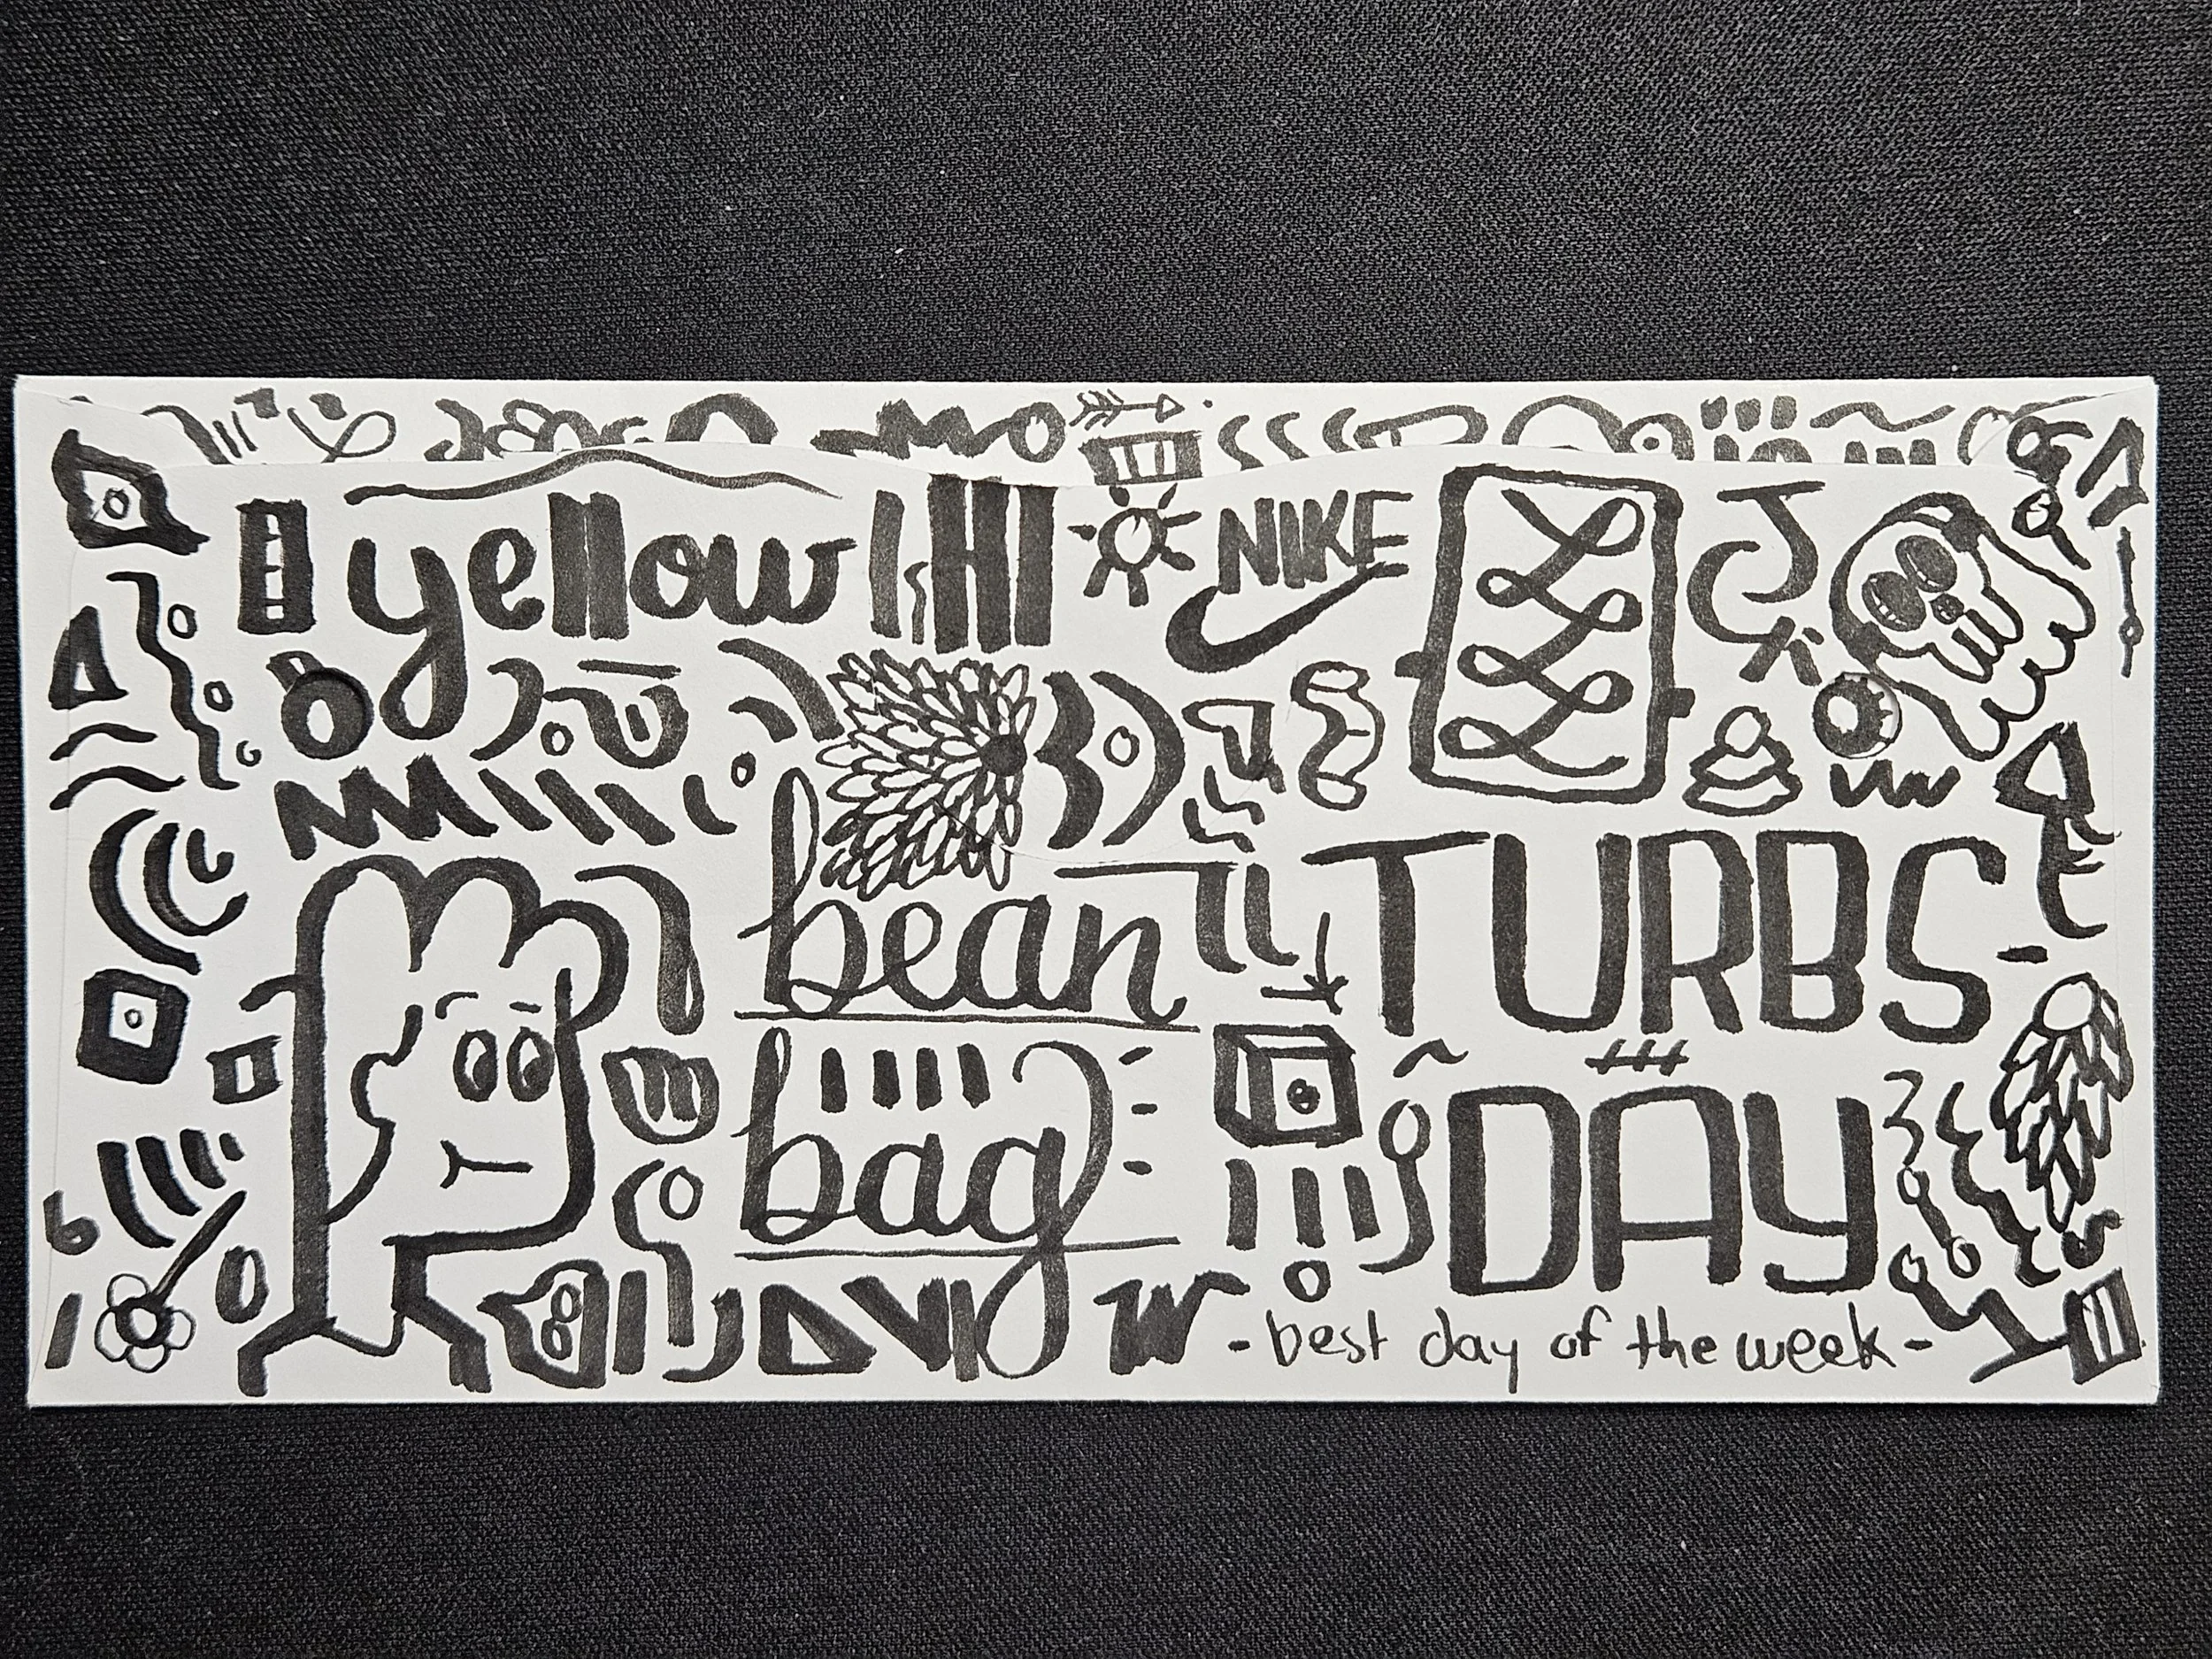 yellow
NIKE
bean
bag
TURBS-
DAY
-best day of the week-